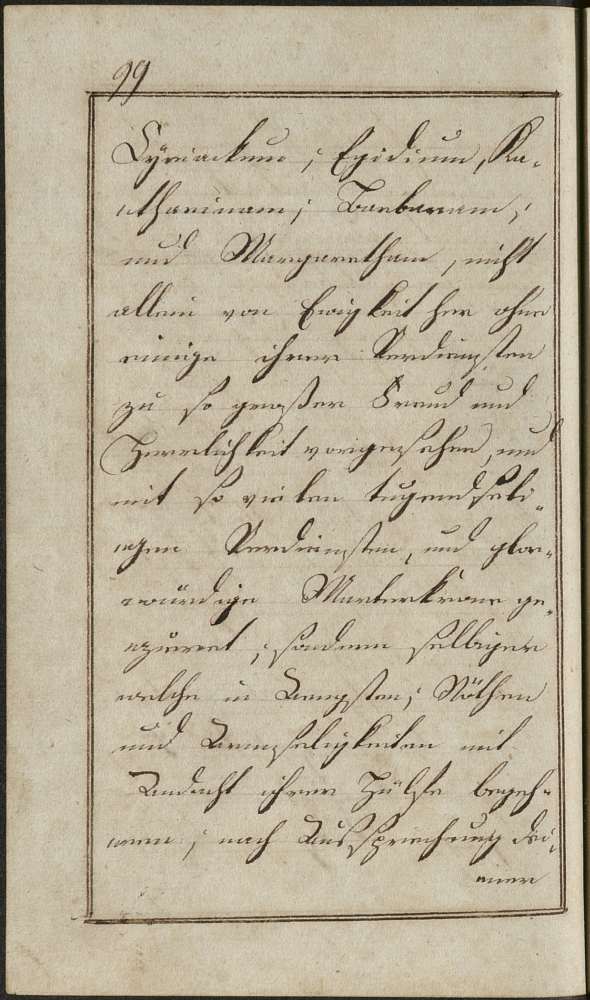 99
Cyriackum, Egidium, Ka-
tharinam, Barbaram,
und Margaretham, nicht
allein von Ewigkeit her ohne
einige ihrer Verdiensten
zu so großer Freud und
Herrlichkeit vorgesehen, und
mit so vielen tugendseli-
gen Verdiensten, und glor-
würdige Marterkrone ge-
zieret, sondern selbigen
welche in Aengsten, Nöthen
und Armseligkeiten mit
Andacht ihrer Hülfe begeh-
ren, nach Aussprechung dei-
ner